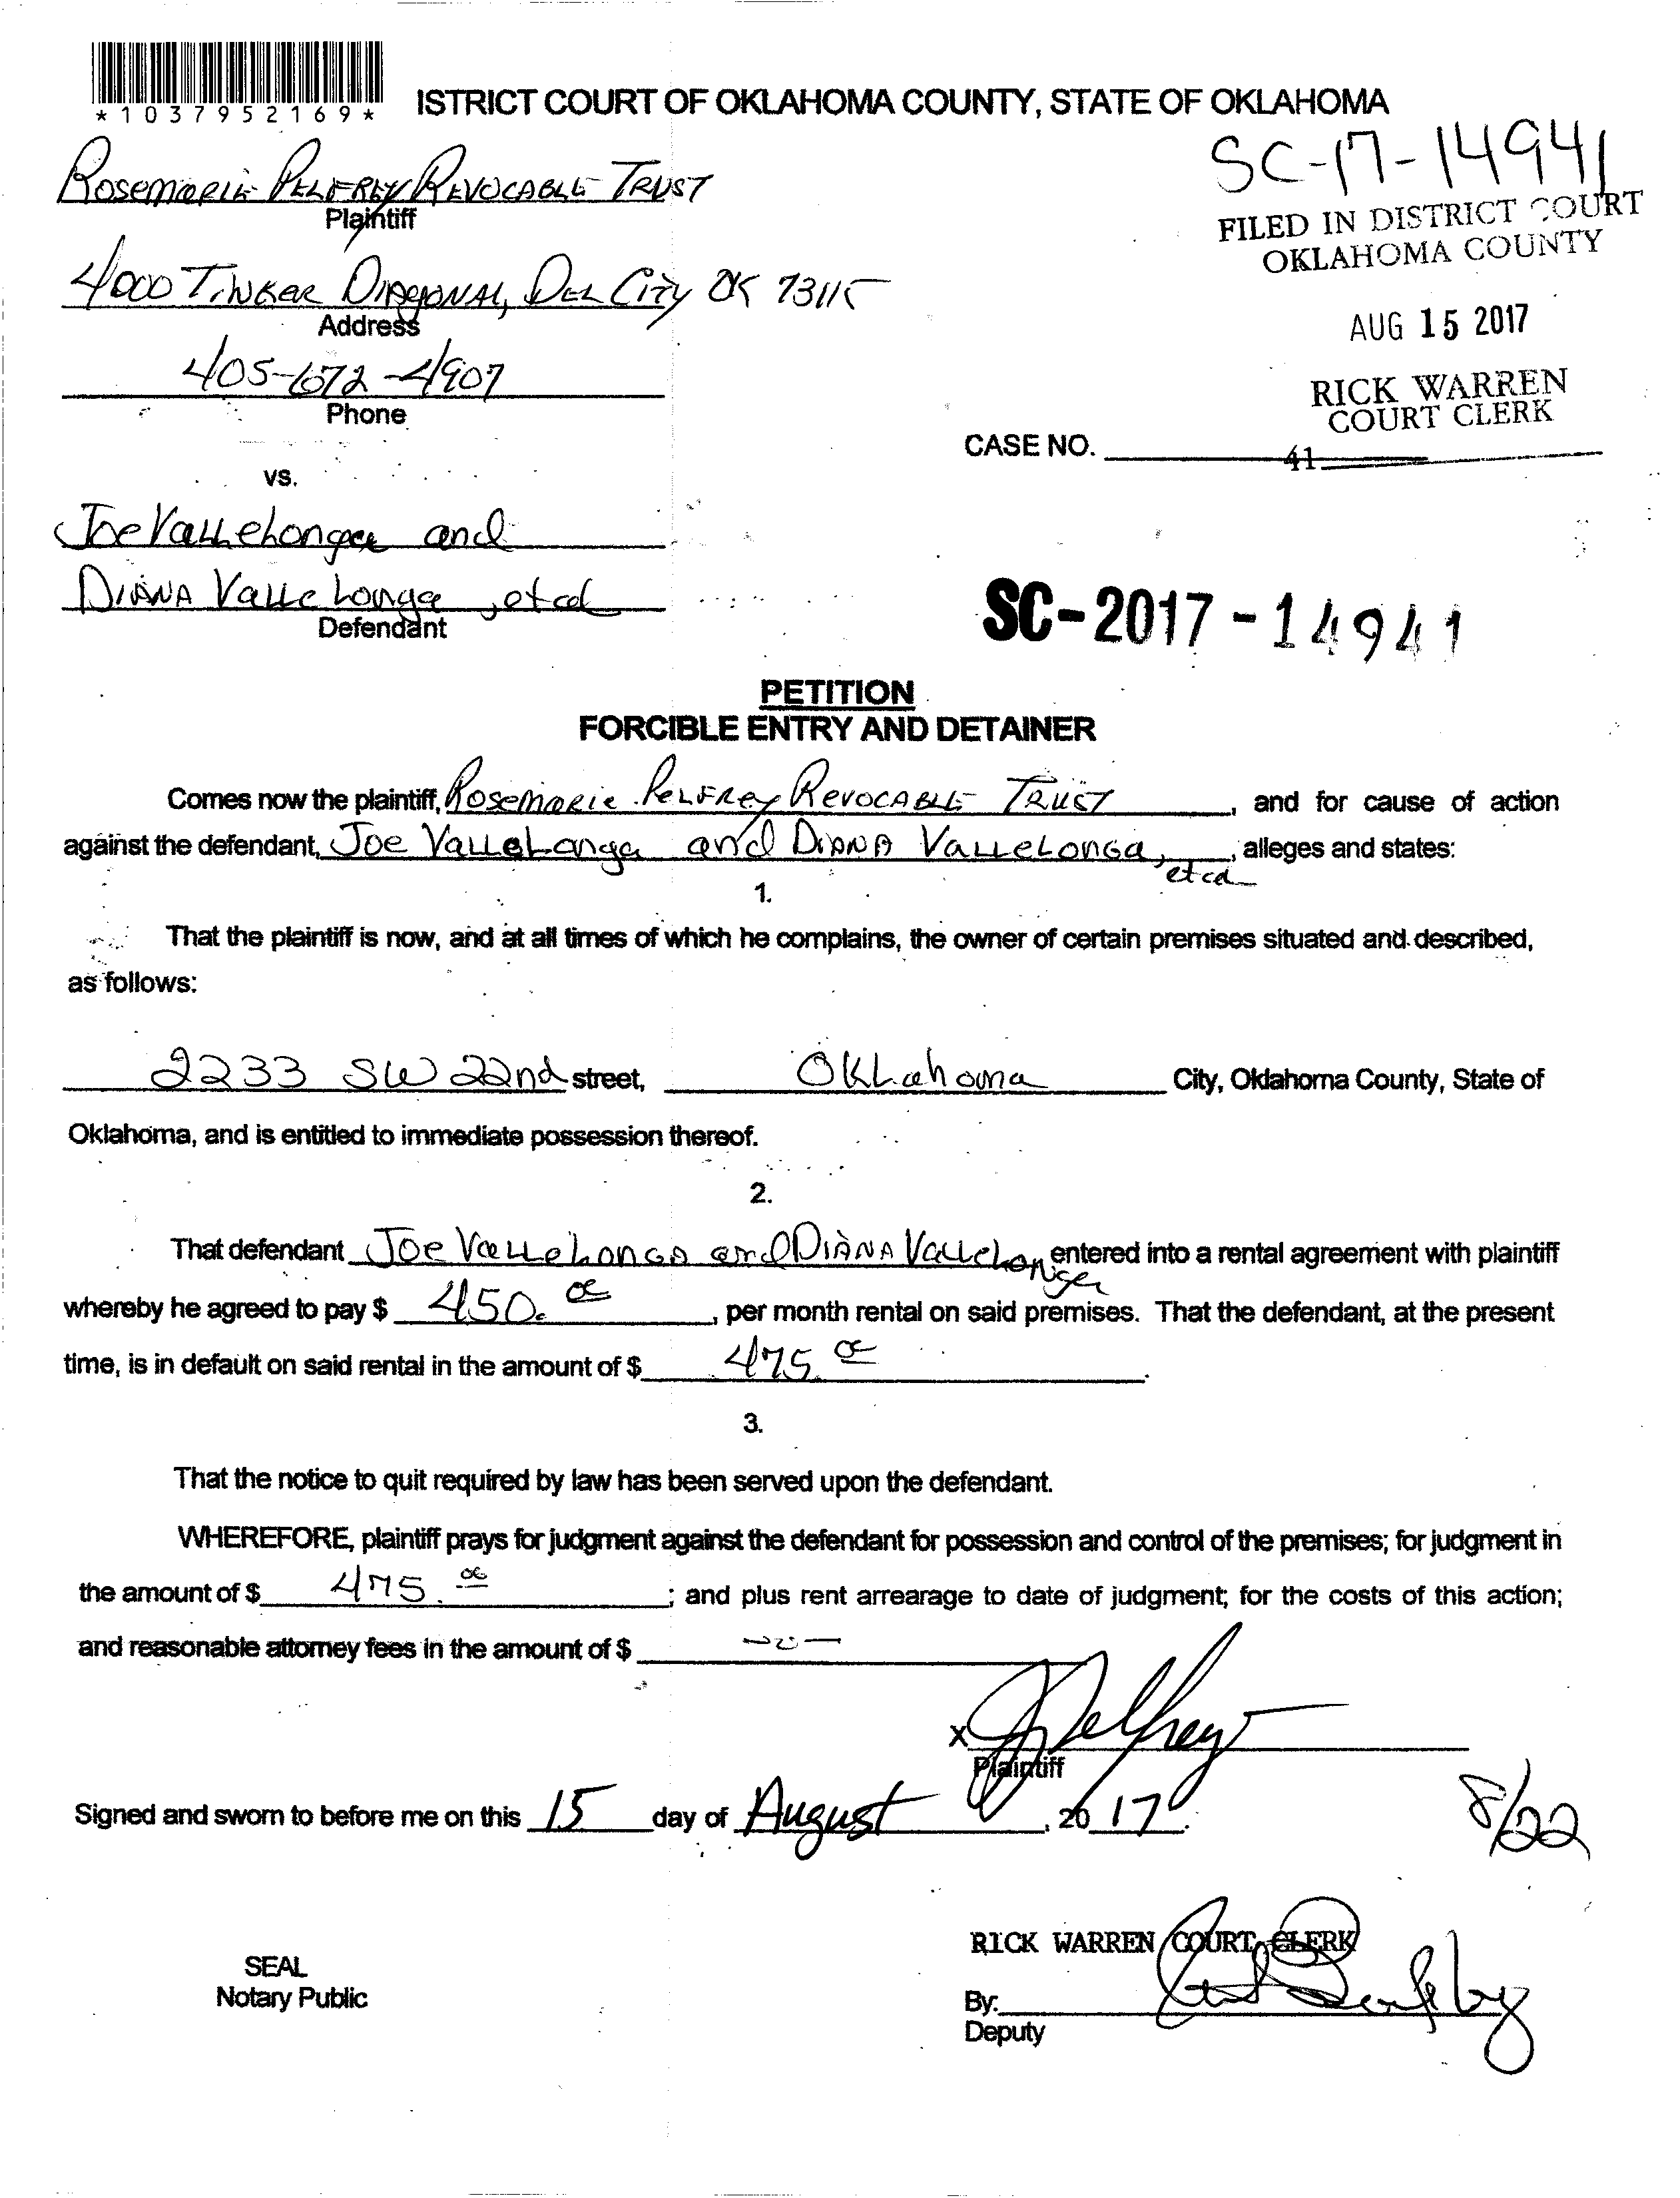 *1037952169*
ISTRICT COURT OF OKLAHOMA COUNTY, STATE OF OKLAHOMA
SC-17-14941
Rosemarie Pelfrey Revocable Trust
Plaintiff
FILED IN DISTRICT COURT
OKLAHOMA COUNTY
4000 Tinker Diagonal, Del City OK 73115
Address
AUG 15 2017
405-672-4907
Phone
RICK WARREN
COURT CLERK
CASE NO.
41
vs.
Joe Vallelonga and
Diana Vallelonga, et al
Defendant
SC-2017-14941
PETITION
FORCIBLE ENTRY AND DETAINER
Comes now the plaintiff, Rosemarie Pelfrey Revocable Trust, and for cause of action
against the defendant, Joe Vallelonga and Diana Vallelonga, et al, alleges and states:
1.
That the plaintiff is now, and at all times of which he complains, the owner of certain premises situated and described,
as follows:
2233 SW 22nd street, Oklahoma City, Oklahoma County, State of
Oklahoma, and is entitled to immediate possession thereof.
2.
That defendant Joe Vallelonga and Diana Vallelonga entered into a rental agreement with plaintiff
whereby he agreed to pay $ 450.00, per month rental on said premises. That the defendant, at the present
time, is in default on said rental in the amount of $ 475.00.
3.
That the notice to quit required by law has been served upon the defendant.
WHEREFORE, plaintiff prays for judgment against the defendant for possession and control of the premises; for judgment in
the amount of $ 475.00; and plus rent arrearage to date of judgment; for the costs of this action;
and reasonable attorney fees in the amount of $ -0-
X Pelfrey
Plaintiff
Signed and sworn to before me on this 15 day of August, 2017.
8/22
RICK WARREN COURT CLERK
SEAL
Notary Public
By:
Deputy